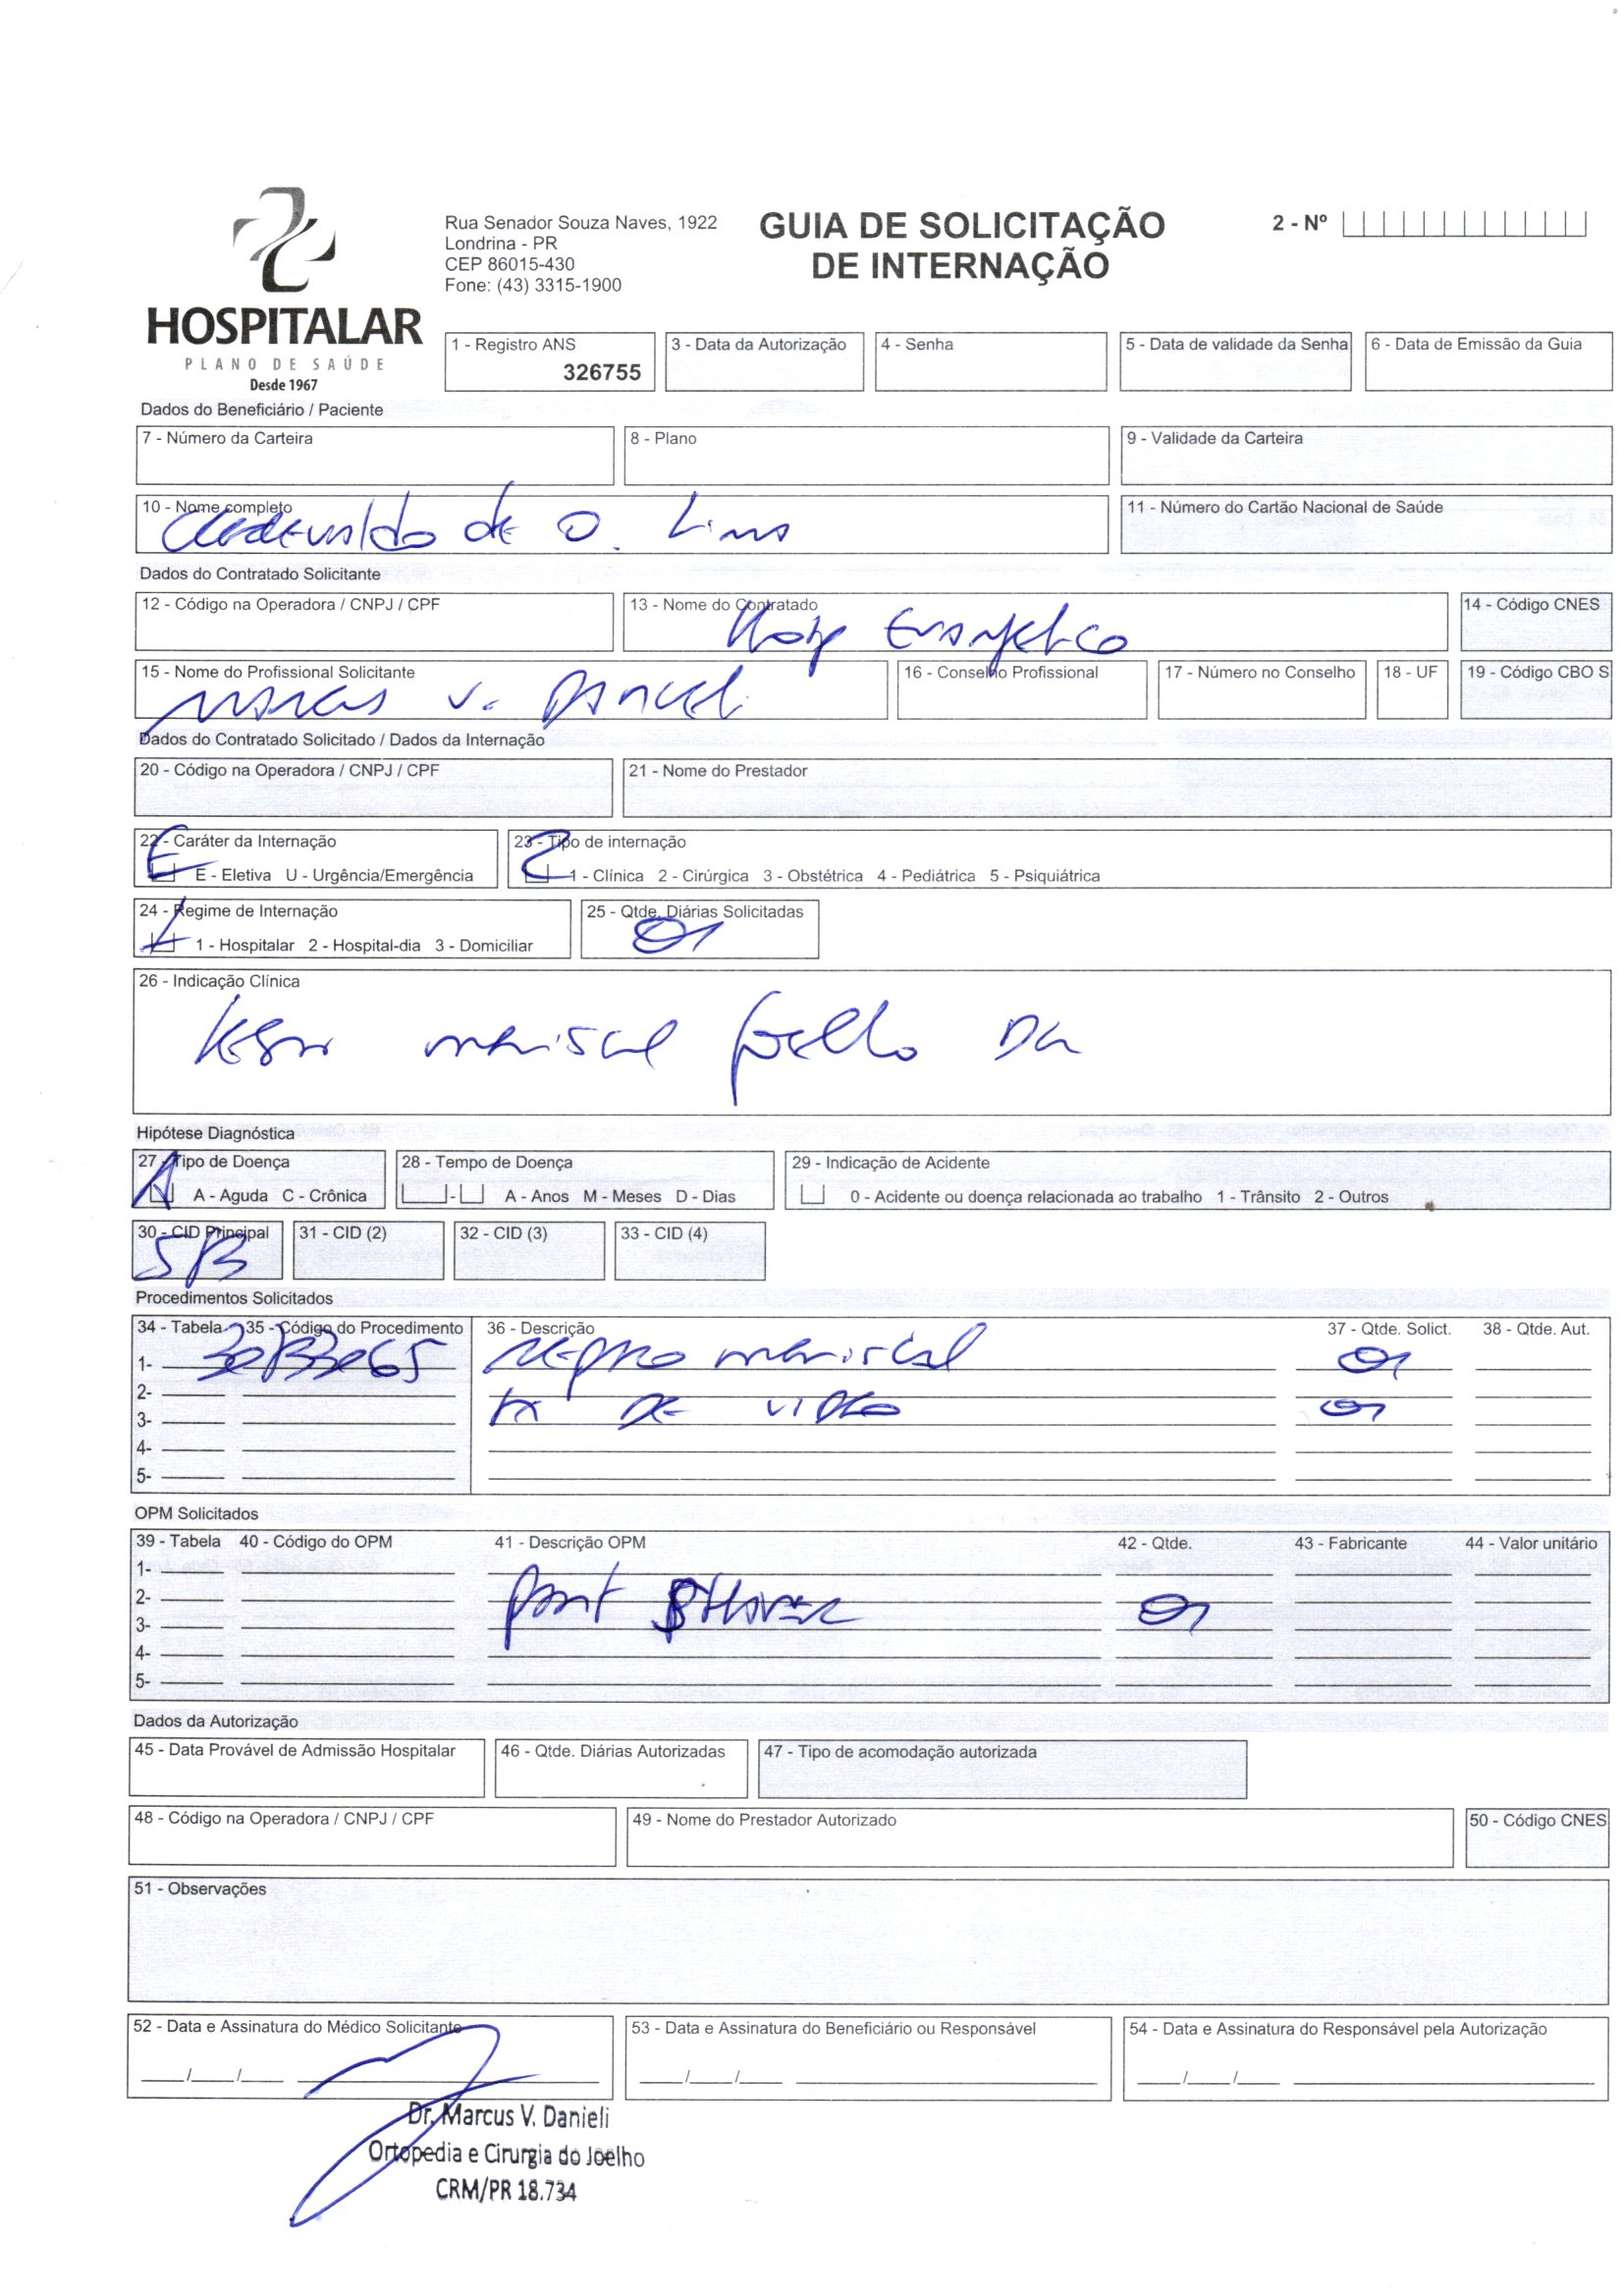 Rua Senador Souza Naves, 1922
Londrina - PR
CEP 86015-430
Fone: (43) 3315-1900
GUIA DE SOLICITAÇÃO
DE INTERNAÇÃO
2 - Nº
HOSPITALAR
PLANO DE SAÚDE
Desde 1967
1 - Registro ANS
326755
3 - Data da Autorização
4 - Senha
5 - Data de validade da Senha
6 - Data de Emissão da Guia
Dados do Beneficiário / Paciente
7 - Número da Carteira
8 - Plano
9 - Validade da Carteira
10 - Nome completo
de O. Lins
11 - Número do Cartão Nacional de Saúde
Dados do Contratado Solicitante
12 - Código na Operadora / CNPJ / CPF
13 - Nome do Contratado
Hosp Evangelico
14 - Código CNES
15 - Nome do Profissional Solicitante
Marcus V. Danieli
16 - Conselho Profissional
17 - Número no Conselho
18 - UF
19 - Código CBO S
Dados do Contratado Solicitado / Dados da Internação
20 - Código na Operadora / CNPJ / CPF
21 - Nome do Prestador
22 - Caráter da Internação
E E - Eletiva U - Urgência/Emergência
23 - Tipo de internação
2 1 - Clínica 2 - Cirúrgica 3 - Obstétrica 4 - Pediátrica 5 - Psiquiátrica
24 - Regime de Internação
1 1 - Hospitalar 2 - Hospital-dia 3 - Domiciliar
25 - Qtde. Diárias Solicitadas
01
26 - Indicação Clínica
Lesão meniscal joelho
Hipótese Diagnóstica
27 - Tipo de Doença
A A - Aguda C - Crônica
28 - Tempo de Doença
- A - Anos M - Meses D - Dias
29 - Indicação de Acidente
0 - Acidente ou doença relacionada ao trabalho 1 - Trânsito 2 - Outros
30 - CID Principal
31 - CID (2)
32 - CID (3)
33 - CID (4)
Procedimentos Solicitados
34 - Tabela 35 - Código do Procedimento
36 - Descrição
37 - Qtde. Solict.
38 - Qtde. Aut.
1- meniscal 01
2-
3- tx de video 01
4-
5-
OPM Solicitados
39 - Tabela 40 - Código do OPM
41 - Descrição OPM
42 - Qtde.
43 - Fabricante
44 - Valor unitário
1-
2-
3- pont shaver 01
4-
5-
Dados da Autorização
45 - Data Provável de Admissão Hospitalar
46 - Qtde. Diárias Autorizadas
47 - Tipo de acomodação autorizada
48 - Código na Operadora / CNPJ / CPF
49 - Nome do Prestador Autorizado
50 - Código CNES
51 - Observações
52 - Data e Assinatura do Médico Solicitante
53 - Data e Assinatura do Beneficiário ou Responsável
54 - Data e Assinatura do Responsável pela Autorização
Dr. Marcus V. Danieli
Ortopedia e Cirurgia do Joelho
CRM/PR 18.734